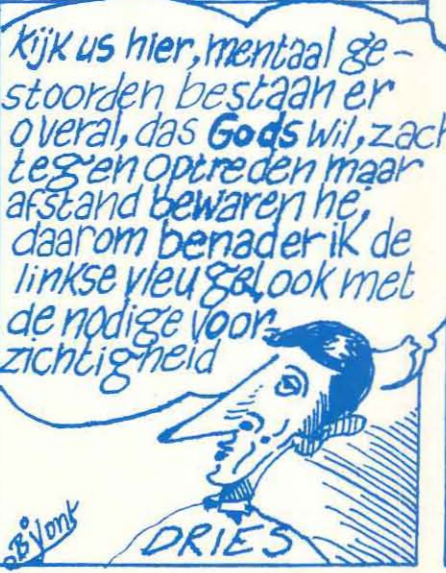 kijk us hier, mentaal ge-
stoorden bestaan er
overal, das Gods wil, zach
tegen optreden maar
afstand bewaren he,
daarom benader ik de
linkse vleugel, ook met
de nodige voor
zichtigheid
DRIES